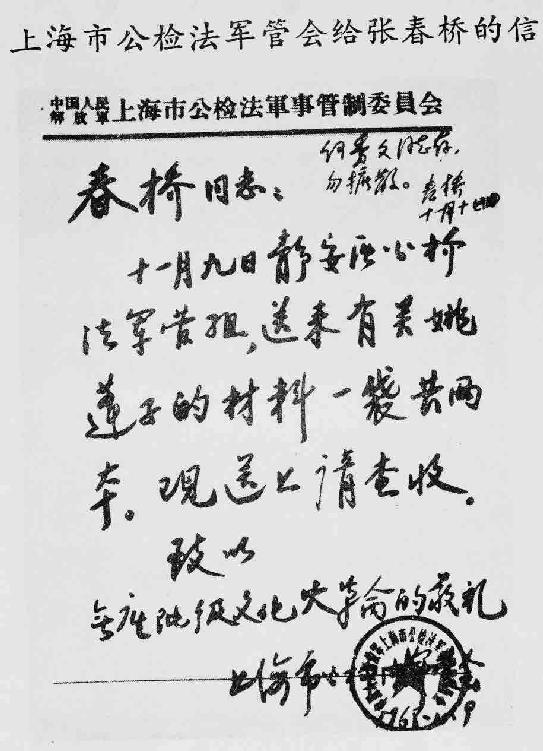 上海市公检法军管会给张春桥的信
中国人民
解放軍 上海市公检法軍事管制委員会
何秀文同志存,
勿擴散。
春桥
十一月十
春桥同志:
十一月九日靜安區公检
法军管组,送来有关姚
蓬子的材料一袋共两
本。现送上请查收。
致以
无产阶级文化大革命的敬礼
上海市